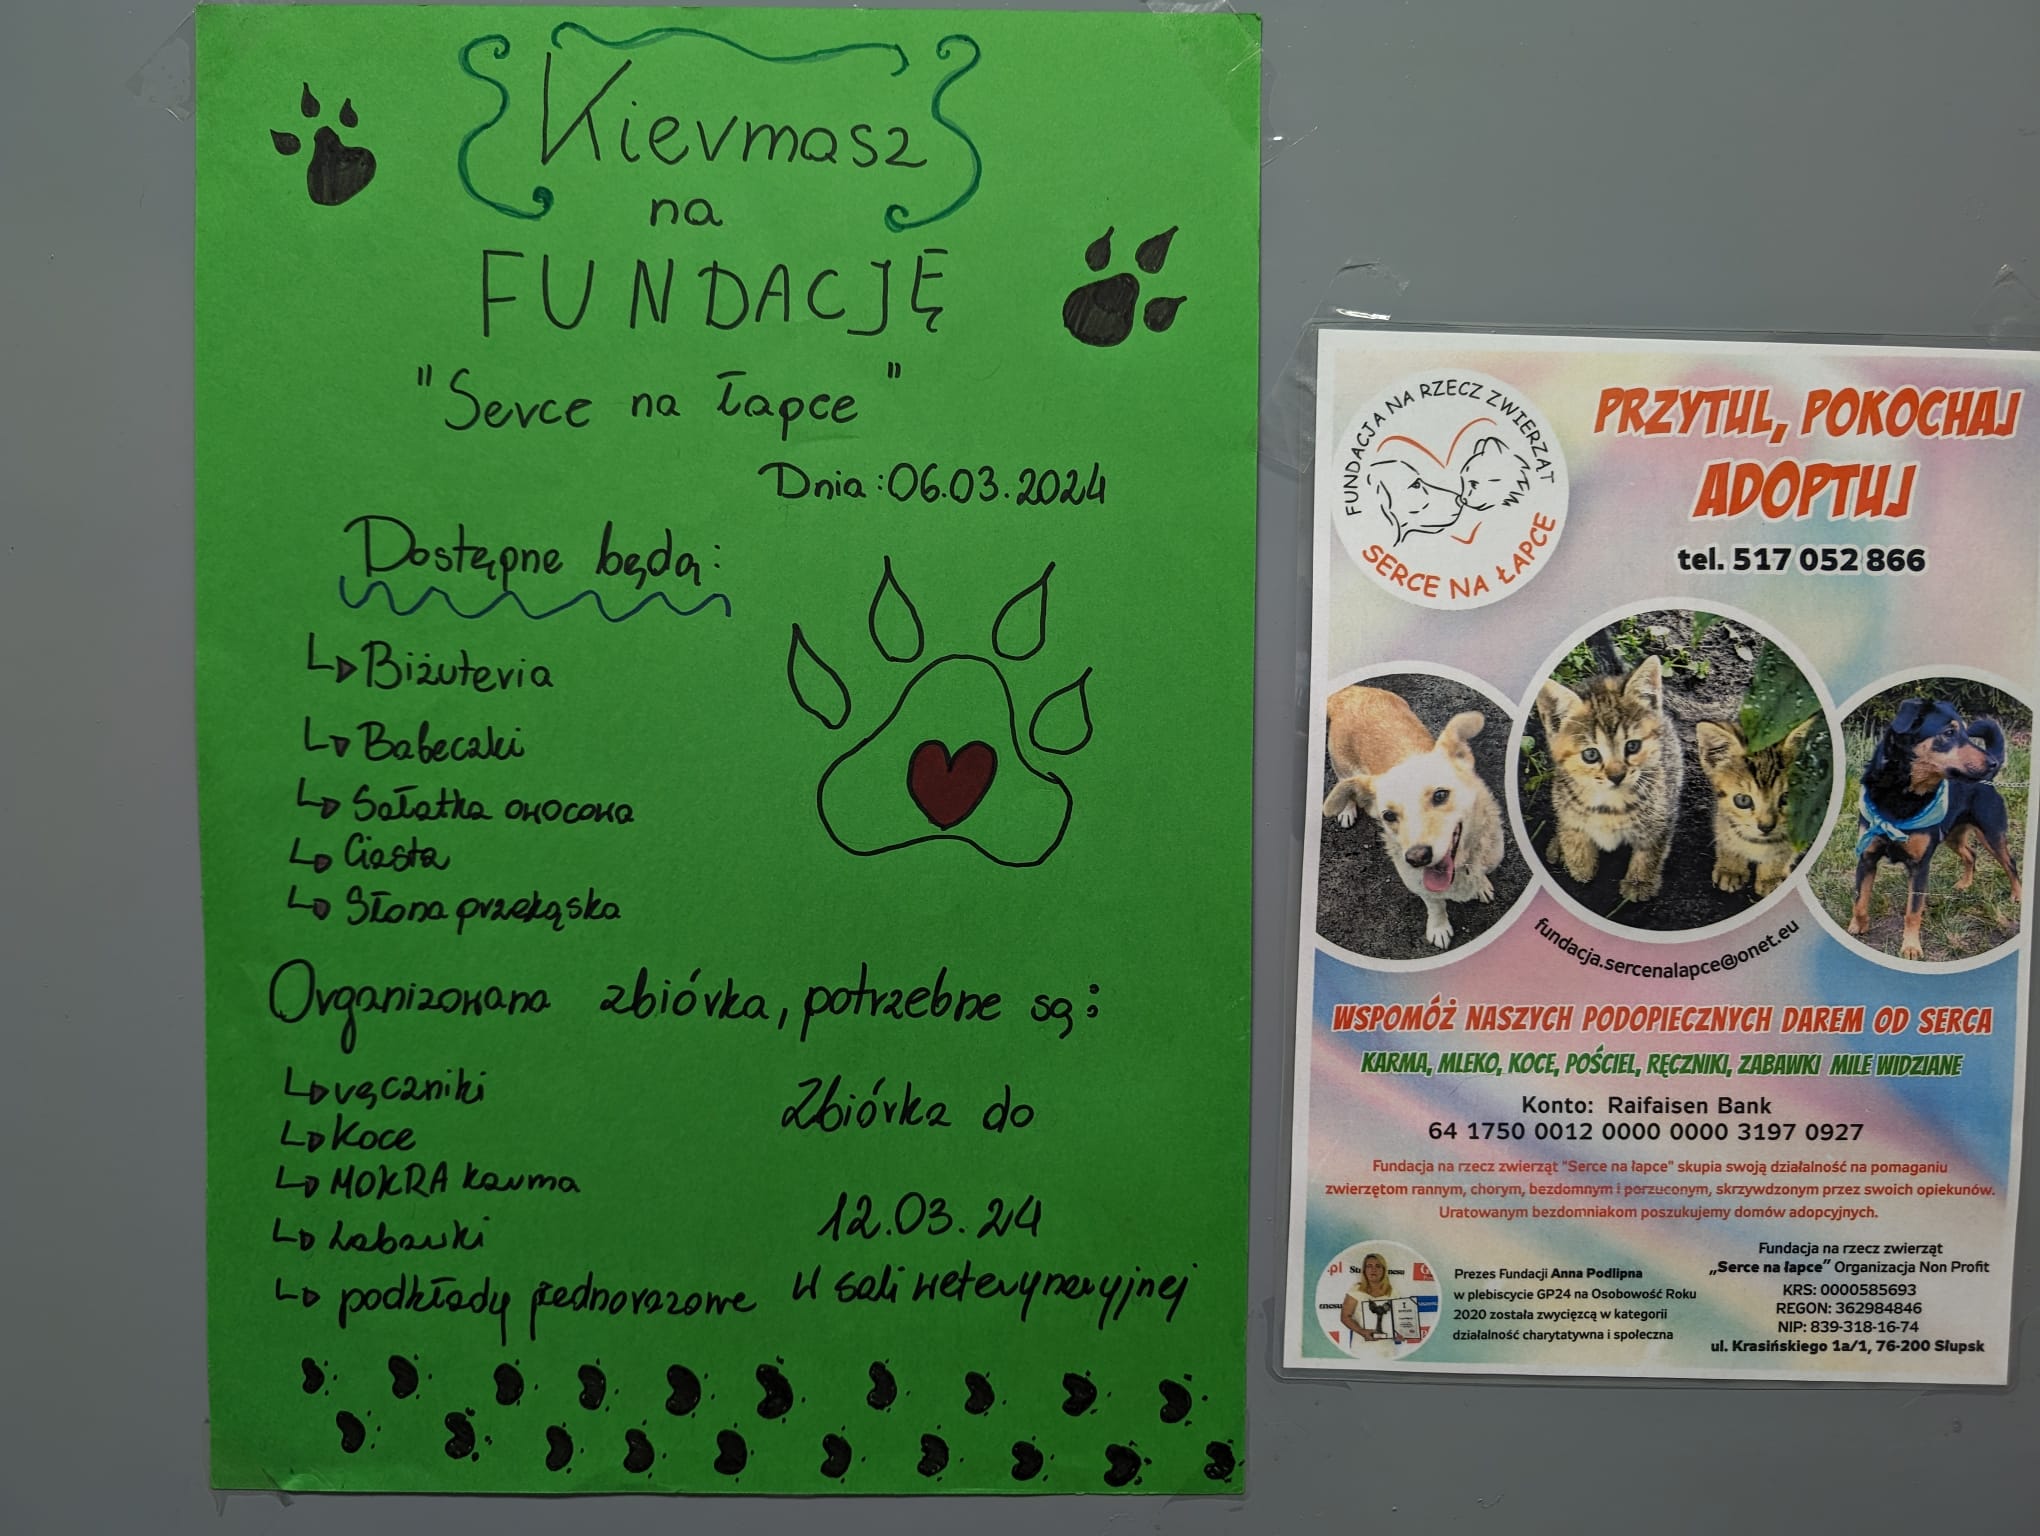 Kiermasz
na
FUNDACJĘ
"Serce na łapce"
Dnia: 06.03.2024
Dostępne będą:
Biżuteria
Babeczki
Sałatka owocowa
Ciasta
Słona przekąska
Organizowana zbiórka, potrzebne są:
ręczniki
Koce
MOKRA karma
Zabawki
podkłady jednorazowe
Zbiórka do
12.03.24
w sali weterynaryjnej
FUNDACJA NA RZECZ ZWIERZĄT
SERCE NA ŁAPCE
PRZYTUL, POKOCHAJ
ADOPTUJ
tel. 517 052 866
fundacja.sercenalapce@onet.eu
WSPOMÓŻ NASZYCH PODOPIECZNYCH DAREM OD SERCA
KARMA, MLEKO, KOCE, POŚCIEL, RĘCZNIKI, ZABAWKI MILE WIDZIANE
Konto: Raifaisen Bank
64 1750 0012 0000 0000 3197 0927
Fundacja na rzecz zwierząt "Serce na łapce" skupia swoją działalność na pomaganiu
zwierzętom rannym, chorym, bezdomnym i porzuconym, skrzywdzonym przez swoich opiekunów.
Uratowanym bezdomniakom poszukujemy domów adopcyjnych.
Prezes Fundacji Anna Podlipna
w plebiscycie GP24 na Osobowość Roku
2020 została zwycięzcą w kategorii
działalność charytatywna i społeczna
Fundacja na rzecz zwierząt
„Serce na łapce” Organizacja Non Profit
KRS: 0000585693
REGON: 362984846
NIP: 839-318-16-74
ul. Krasińskiego 1a/1, 76-200 Słupsk